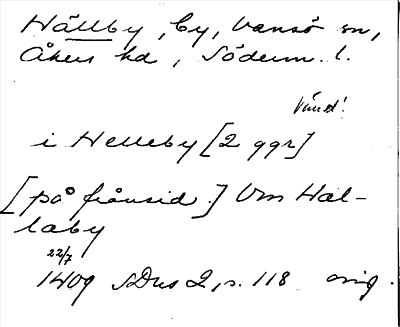 Hällby, by, Vansö sn,
Åkers hd, Söderm. l.
Vänd!
i Helleby [2 ggr]
[på frånsid.] Um Häl-
laby
22/7
1409 SDns 2, s. 118 orig.